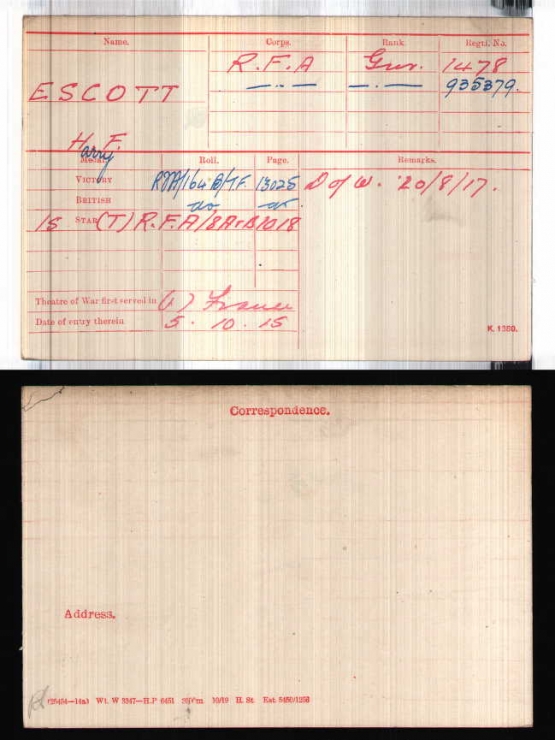 Name. Corps. Rank Regtl. No.
R.F.A Gnr. 1478
ESCOTT —..— —.— 935379.
Harry F.
Medal. Roll. Page. Remarks.
VICTORY RFA/164B/TF. 13025 D of W. 20/8/17.
BRITISH do do
15 STAR (T) R.F.A/8A+B 1018
Theatre of War first served in (1) France
Date of entry therein 5.10.15
K. 1380.
Correspondence.
Address.
Wt. W 5247—H.P 10/19 H. St.